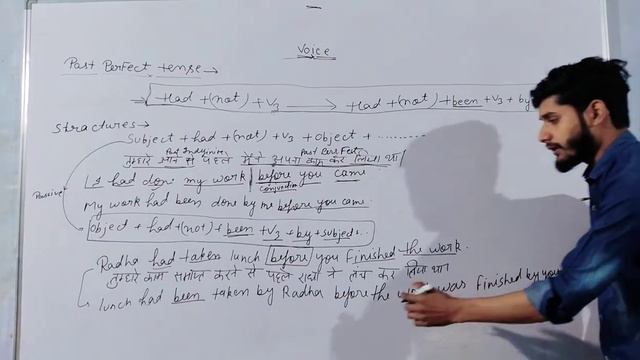 Voice
Past Perfect tense →
Had + (not) + V3 → Had + (not) + been + V3 + by
Structures →
Subject + had + (not) + V3 + Object + ..........
Past Indefinite Past Perfect
तुम्हारे आने से पहले मैंने अपना काम कर लिया था।
I had done my work before you came.
Conjunction
Passive
My work had been done by me before you came.
Object + had + (not) + been + V3 + by + subject...
Radha had taken lunch before you finished the work.
तुम्हारे काम समाप्त करने से पहले राधा ने लंच कर लिया था।
lunch had been taken by Radha before the was finished by you